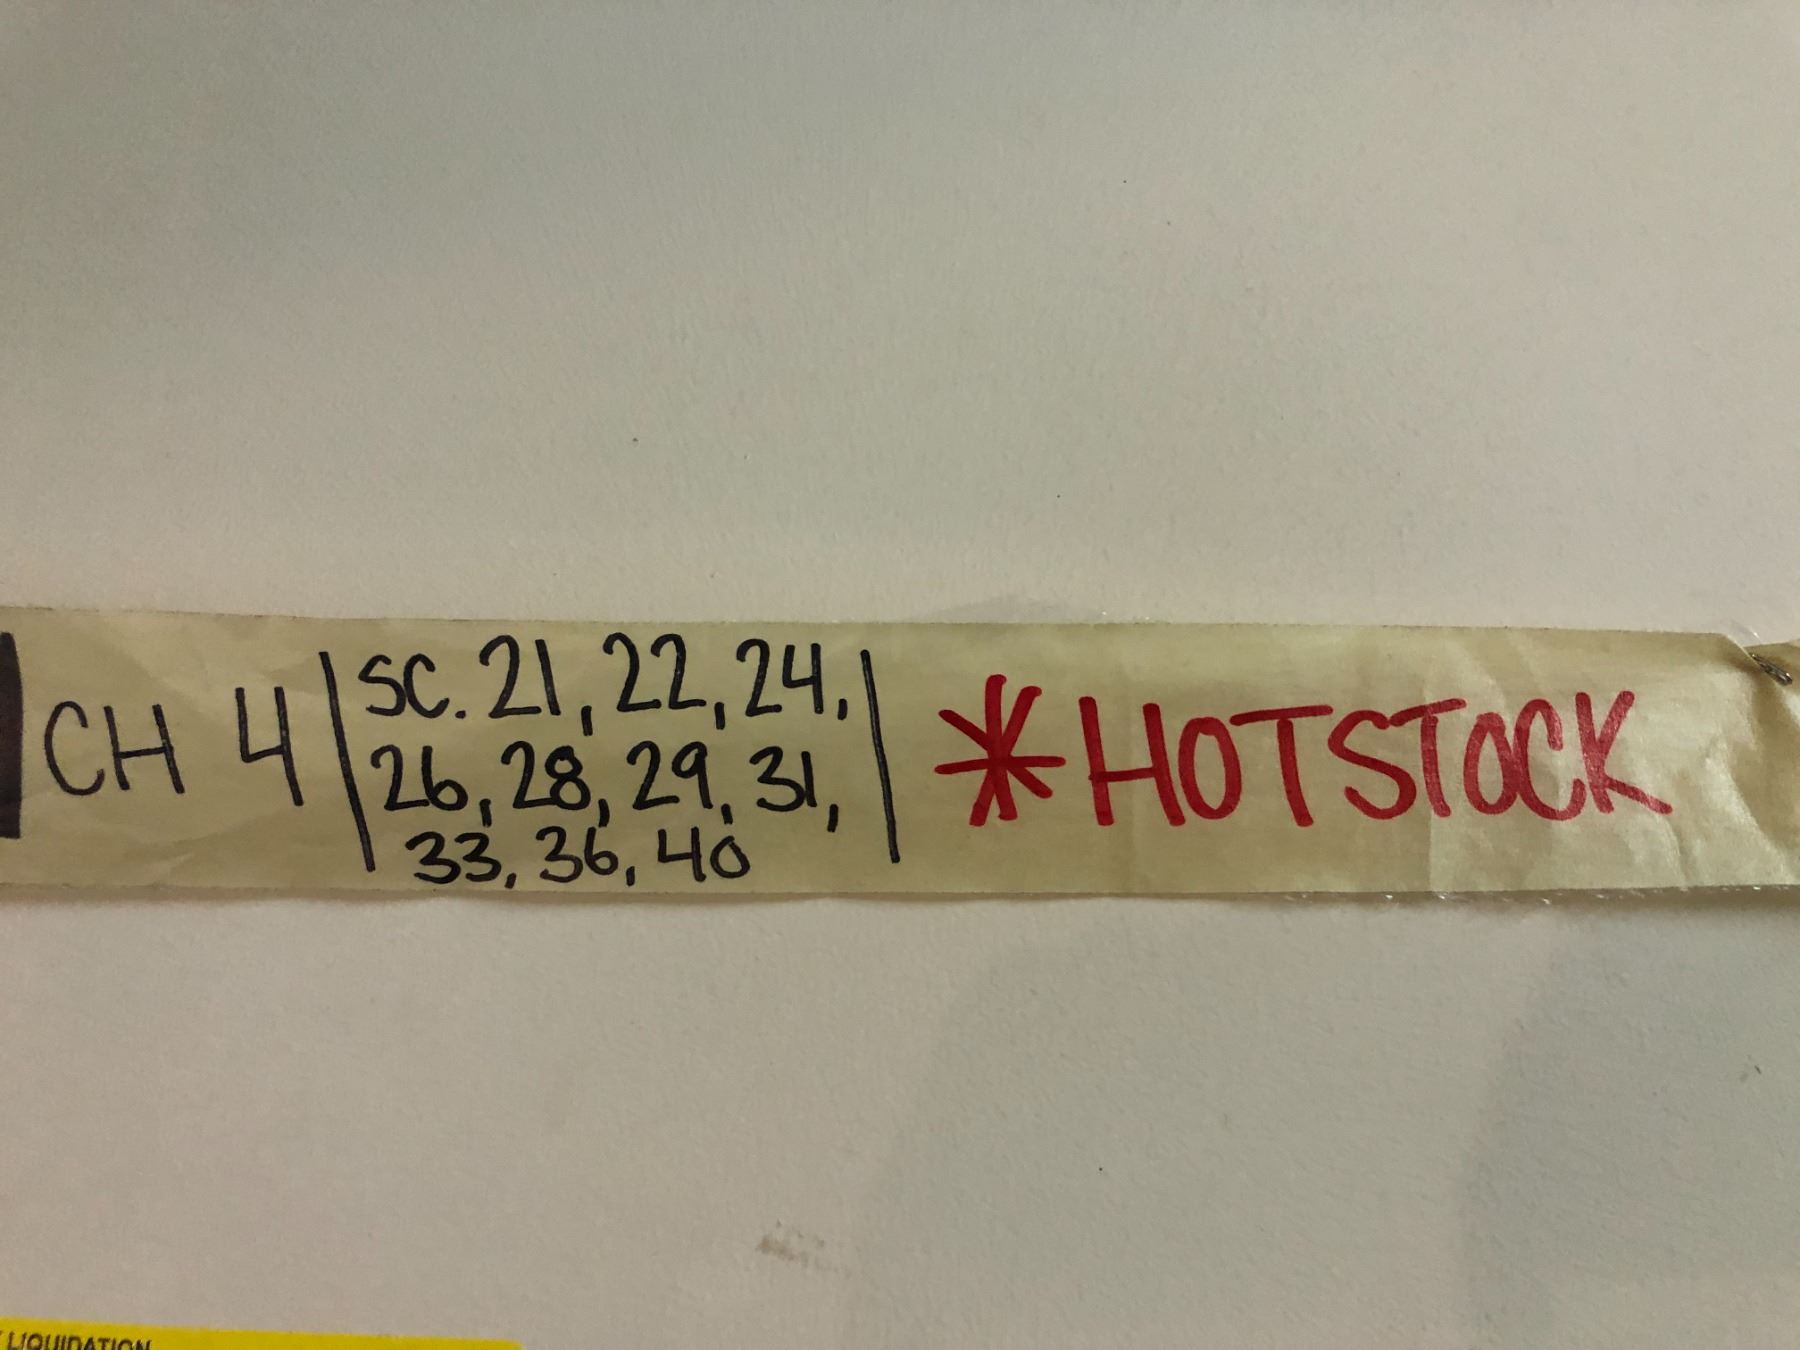 CH 4 | SC. 21, 22, 24,
26, 28, 29, 31,
33, 36, 40 | *HOTSTOCK
LIQUIDATION